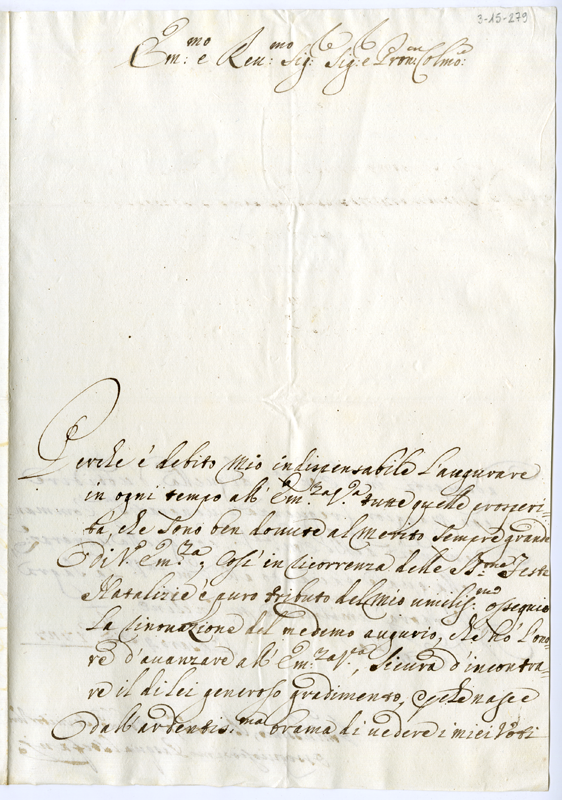 3-15-279
Em:mo e Ren:mo Sig:re Sig:re e Pron:en Colmo:
Perche è debito mio indispensabile l'augurare
in ogni tempo all' Em:za V:a tutte quelle prosperi-
tà, che sono ben douute al merito sempre grande
di V:a Em:za, Così in ricorrenza delle S:me Feste
Natalizie è puro tributo del mio umilis:mo ossequio
la rinouazione del medemo augurio, che hò l'ono-
re d'auanzare all' Em:za V:a, sicura d'incontra-
re il di lei generoso gradimento, perche nasce
dall'ardentis:ma brama di uedere i miei Voti